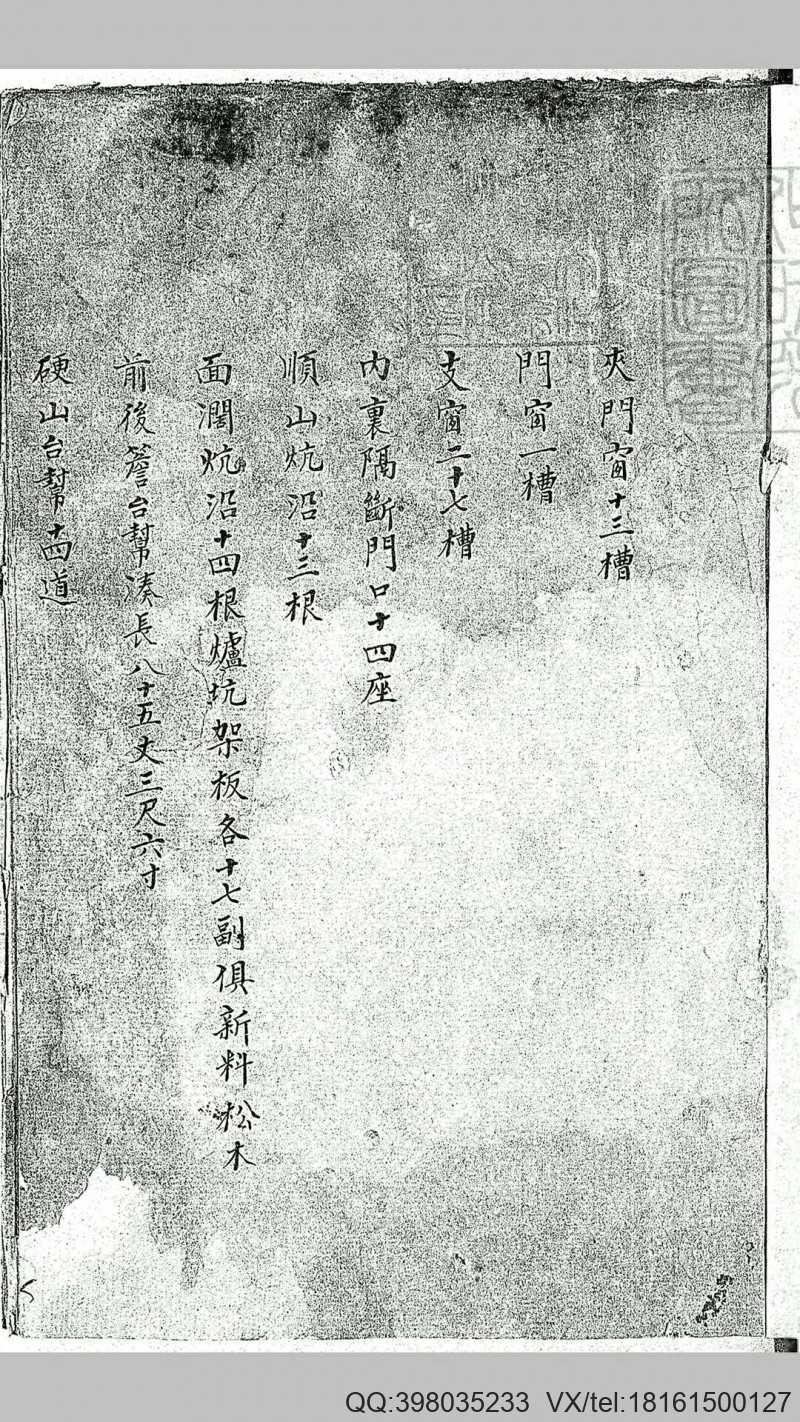 夾門窗十三槽
門窗一槽
支窗二十七槽
內裏隔斷門口十四座
順山炕沿十三根
面濶炕沿十四根爐坑架板各十七副俱新料松木
前後簷台幫湊長八十五丈三尺六寸
硬山台幫十四道
QQ:398035233 VX/tel:18161500127